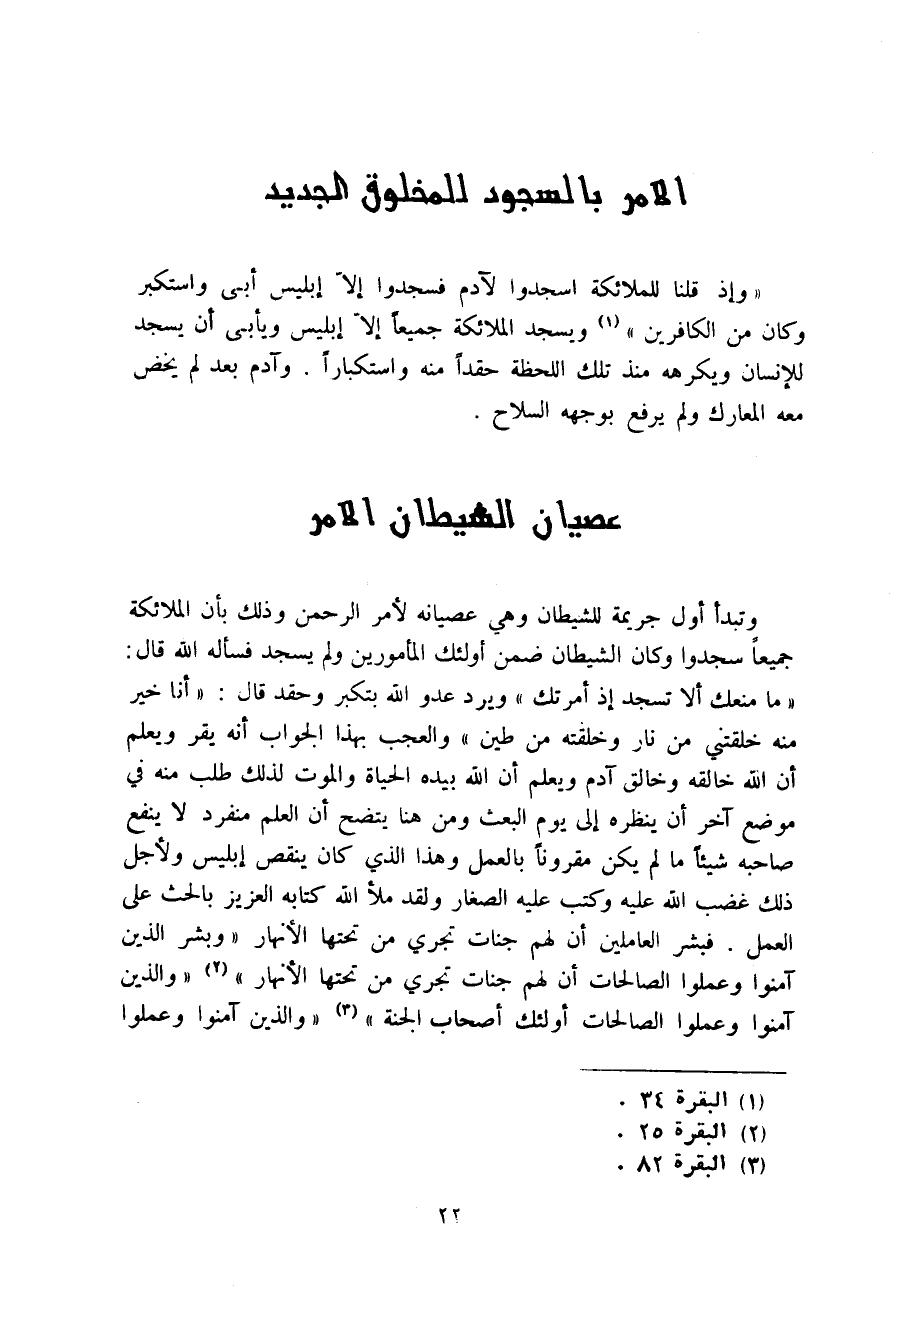 الامر بالسجود للمخلوق الجديد
« وإذ قلنا للملائكة اسجدوا لآدم فسجدوا إلاّ إبليس أبى واستكبر
وكان من الكافرين » (١) ويسجد الملائكة جميعاً إلاّ إبليس ويأبى أن يسجد
للإنسان ويكرهه منذ تلك اللحظة حقداً منه واستكباراً . وآدم بعد لم يخض
معه المعارك ولم يرفع بوجهه السلاح .
عصيان الشيطان الامر
وتبدأ أول جريمة للشيطان وهي عصيانه لأمر الرحمن وذلك بأن الملائكة
جميعاً سجدوا وكان الشيطان ضمن أولئك المأمورين ولم يسجد فسأله الله قال :
« ما منعك ألا تسجد إذ أمرتك » ويرد عدو الله بتكبر وحقد قال : « أنا خير
منه خلقتني من نار وخلقته من طين » والعجب بهذا الجواب أنه يقر ويعلم
أن الله خالقه وخالق آدم ويعلم أن الله بيده الحياة والموت لذلك طلب منه في
موضع آخر أن ينظره إلى يوم البعث ومن هنا يتضح أن العلم منفرد لا ينفع
صاحبه شيئاً ما لم يكن مقروناً بالعمل وهذا الذي كان ينقص إبليس ولأجل
ذلك غضب الله عليه وكتب عليه الصغار ولقد ملأ الله كتابه العزيز بالحث على
العمل . فبشر العاملين أن لهم جنات تجري من تحتها الأنهار « وبشر الذين
آمنوا وعملوا الصالحات أن لهم جنات تجري من تحتها الأنهار » (٢) « والذين
آمنوا وعملوا الصالحات أولئك أصحاب الجنة » (٣) « والذين آمنوا وعملوا
(١) البقرة ٣٤ .
(٢) البقرة ٢٥ .
(٣) البقرة ٨٢ .
٢٢